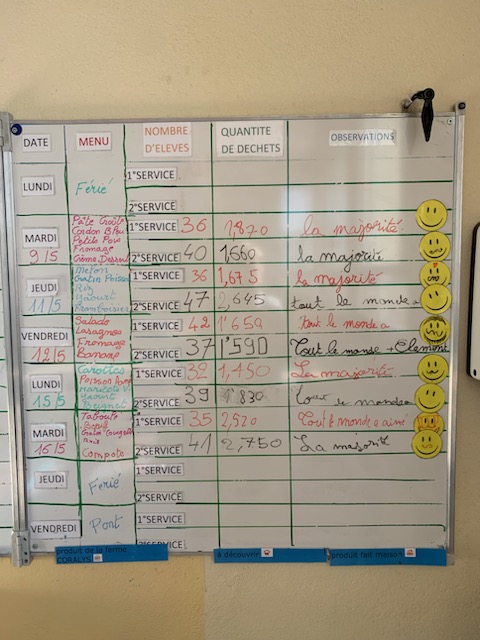 DATE MENU NOMBRE D'ELEVES QUANTITE DE DECHETS OBSERVATIONS
LUNDI Férié 1°SERVICE
2°SERVICE
MARDI 9/5
Pâté Croûte
Cordon Bleu
Petits Pois
Fromage
Crème Dessert
1°SERVICE 36 1,870 la majorité
2°SERVICE 40 1,660 la majorité
JEUDI 11/5
Melon
Gratin Poisson
Riz
Yaourt
Framboisier
1°SERVICE 36 1,675 la majorité
2°SERVICE 47 2,645 tout le monde a
VENDREDI 12/5
Salade
Lasagnes
Fromage
Banane
1°SERVICE 42 1'659 tout le monde a
2°SERVICE 37 1'590 Tout le monde + Clement
LUNDI 15/5
Carottes
Poisson
Haricots V
Yaourt
Beignet
1°SERVICE 32 1,450 La majorité
2°SERVICE 39 1'830 tout le monde
MARDI 16/5
Taboulé
Compote
1°SERVICE 35 2,520 Tout le monde a aimé
2°SERVICE 41 2,750 La majorité
JEUDI Férié 1°SERVICE
2°SERVICE
VENDREDI Pont 1°SERVICE
2°SERVICE
produit de la ferme CORALYS
à découvrir
produit fait maison